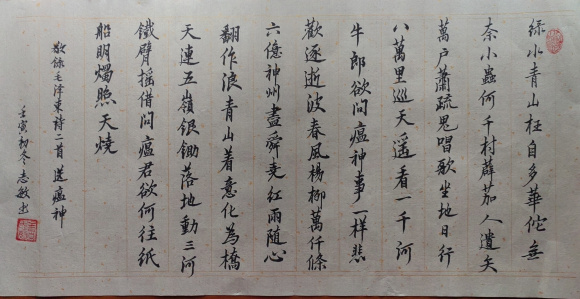 綠水青山枉自多華佗無
奈小蟲何千村薜荔人遺矢
萬户蕭疏鬼唱歌坐地日行
八萬里巡天遥看一千河
牛郎欲問瘟神事一樣悲
歡逐逝波春風楊柳萬仟條
六億神州盡舜堯紅雨隨心
翻作浪青山着意化為橋
天連五嶺銀鋤落地動三河
鐵臂摇借問瘟君欲何往紙
船明燭照天燒
敬錄毛澤東詩二首送瘟神
壬寅初冬志敏書